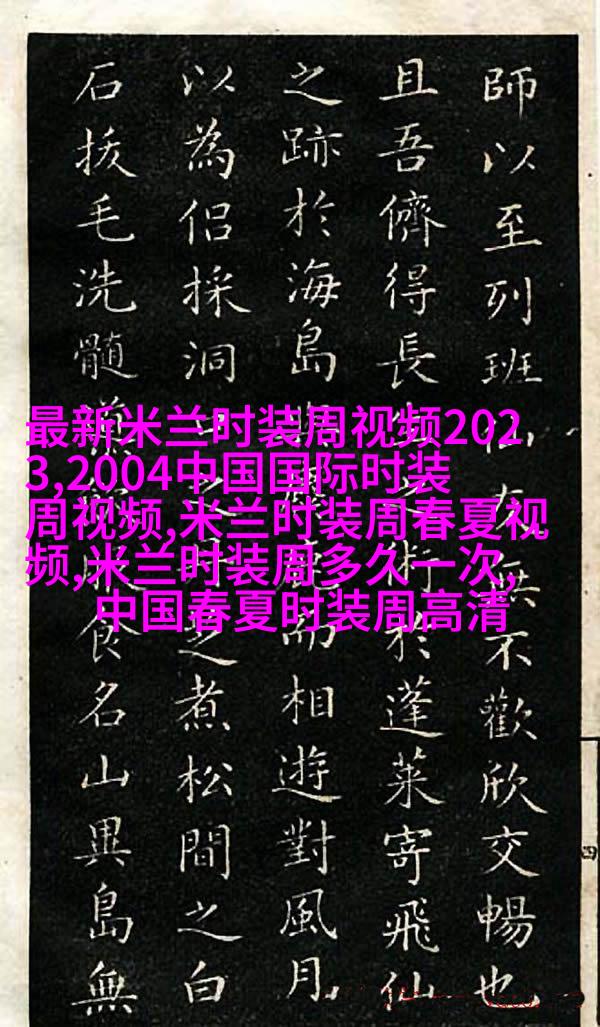 師以至列班友不歡欣交暢也
且吾儕得長生之術於蓬萊寄飛仙
之跡於海島而相遊對風月
以為侶採洞之煮松間之白
石拔毛洗髓食名山異島無
最新米兰时装周视频202
3,2004中国国际时装
周视频,米兰时装周春夏视
频,米兰时装周多久一次,
中国春夏时装周高清